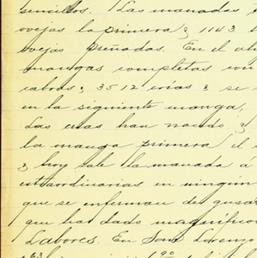 sencillos. Las manadas
ovejas la primera y 1143
ovejas preñadas. En el
mangas completas con
cabras y 3512 crías y se
en la siguiente manga,
Las crías han nacido y
la manga primera el
y hoy sale la manada á
extraordinarias en ningún
que se enferman de
que han dado magnífico
Labores. En San Lorenzo